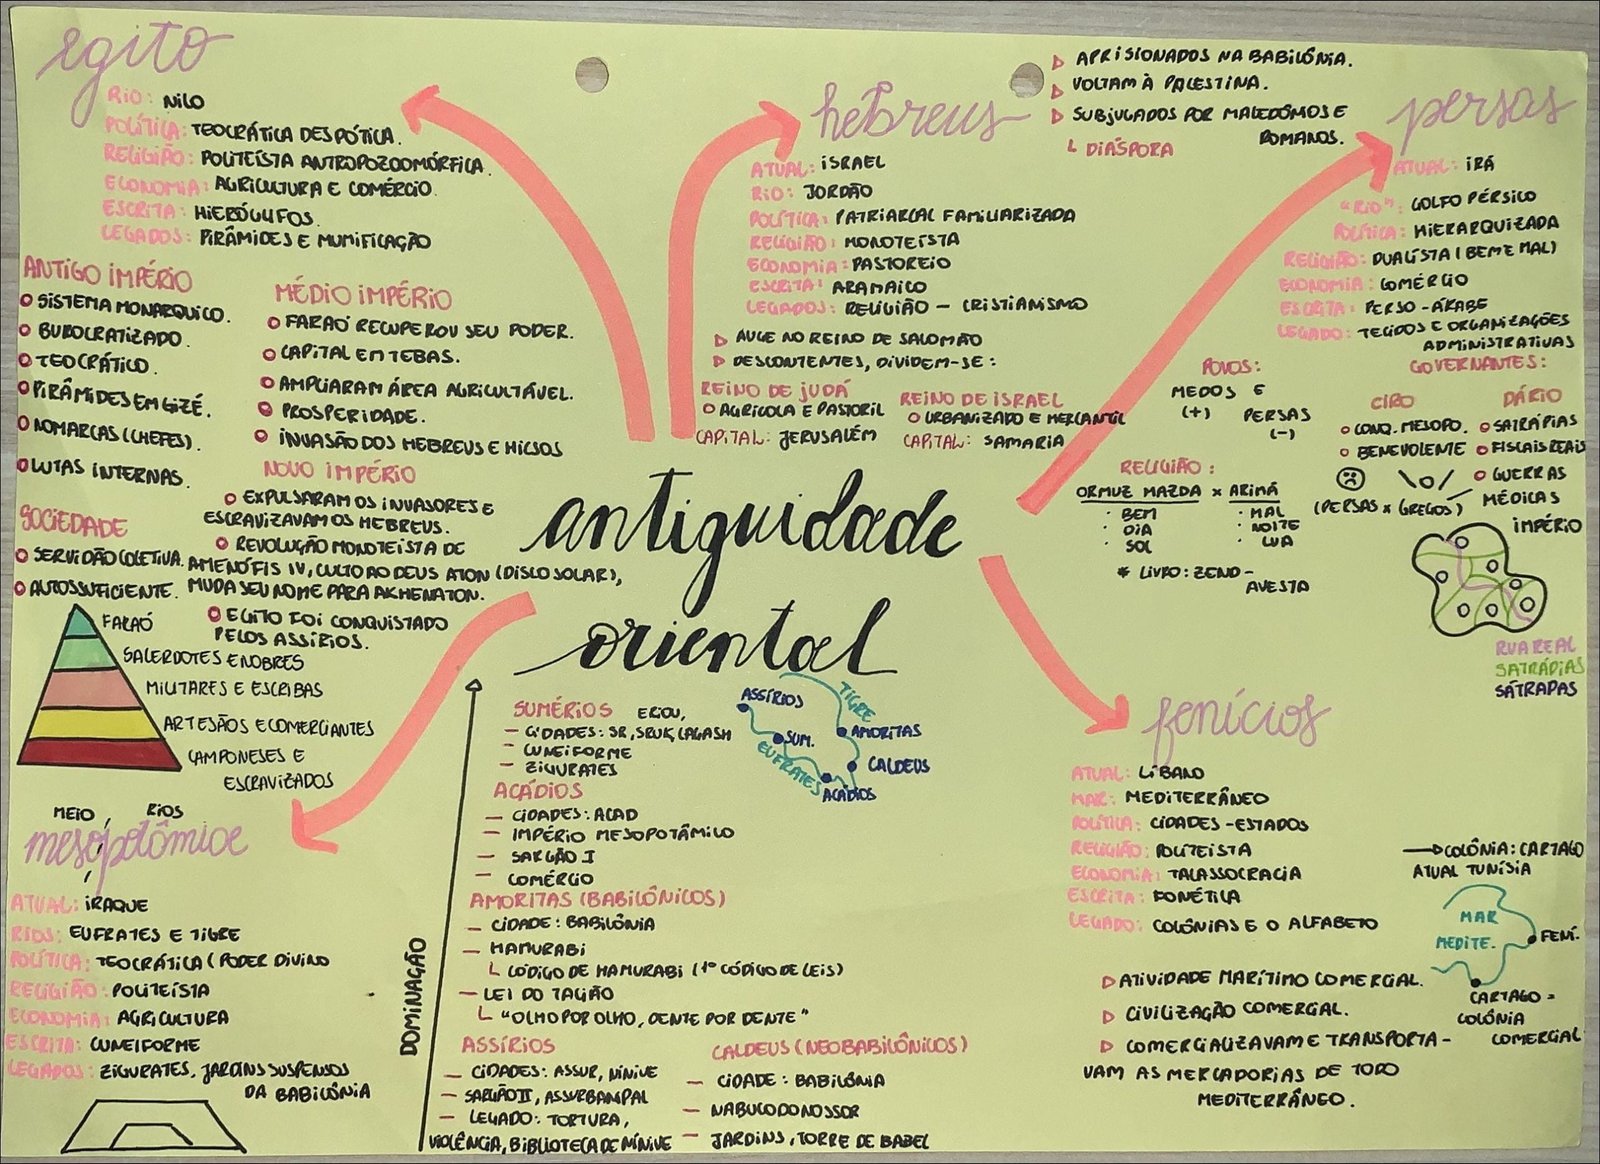 egito
RIO: NILO
POLÍTICA: TEOCRÁTICA DESPÓTICA.
RELIGIÃO: POLITEÍSTA ANTROPOZOOMÓRFICA.
ECONOMIA: AGRICULTURA E COMÉRCIO.
ESCRITA: HIERÓGLIFOS.
LEGADOS: PIRÂMIDES E MUMIFICAÇÃO
ANTIGO IMPÉRIO
SISTEMA MONARQUICO.
BUROCRATIZADO.
TEOCRÁTICO.
PIRÂMIDES EM GIZÉ.
NOMARCAS (CHEFES).
LUTAS INTERNAS.
MÉDIO IMPÉRIO
FARAÓ RECUPEROU SEU PODER.
CAPITAL EM TEBAS.
AMPLIARAM ÁREA AGRICULTÁVEL.
PROSPERIDADE.
INVASÃO DOS HEBREUS E HICSOS
NOVO IMPÉRIO
EXPULSARAM OS INVASORES E
ESCRAVIZAVAM OS HEBREUS.
REVOLUÇÃO MONOTEÍSTA DE
AMENÓFIS IV, CULTO AO DEUS ATON (DISCO SOLAR),
MUDA SEU NOME PARA AKHENATON.
EGITO FOI CONQUISTADO
PELOS ASSÍRIOS.
SOCIEDADE
SERVIDÃO COLETIVA.
AUTOSSUFICIENTE.
FARAÓ
SACERDOTES E NOBRES
MILITARES E ESCRIBAS
ARTESÃOS E COMERCIANTES
CAMPONESES E
ESCRAVIZADOS
hebreus
ATUAL: ISRAEL
RIO: JORDÃO
POLÍTICA: PATRIARCAL FAMILIARIZADA
RELIGIÃO: MONOTEÍSTA
ECONOMIA: PASTOREIO
ESCRITA: ARAMAICO
LEGADOS: RELIGIÃO - CRISTIANISMO
▷ AUGE NO REINO DE SALOMÃO
▷ DESCONTENTES, DIVIDEM-SE:
REINO DE JUDÁ
AGRÍCOLA E PASTORIL
CAPITAL: JERUSALÉM
REINO DE ISRAEL
URBANIZADO E MERCANTIL
CAPITAL: SAMARIA
▷ APRISIONADOS NA BABILÔNIA.
▷ VOLTAM À PALESTINA.
▷ SUBJUGADOS POR MACEDÔNIOS E
ROMANOS.
└ DIÁSPORA
persas
ATUAL: IRÃ
"RIO": GOLFO PÉRSICO
POLÍTICA: HIERARQUIZADA
RELIGIÃO: DUALÍSTA (BEM E MAL)
ECONOMIA: COMÉRCIO
ESCRITA: PERSO-ÁRABE
LEGADO: TECIDOS E ORGANIZAÇÕES
ADMINISTRATIVAS
POVOS:
MEDOS E
(+) PERSAS
(-)
GOVERNANTES:
CIRO
CONQ. MESOPO.
BENEVOLENTE
DÁRIO
SATRÁPIAS
FISCAIS REAIS
GUERRAS
MÉDICAS
(PERSAS X GREGOS)
IMPÉRIO
RUA REAL
SATRÁPIAS
SÁTRAPAS
RELIGIÃO:
ORMUZ MAZDA X ARIMÃ
· BEM · MAL
· DIA · NOITE
· SOL · LUA
* LIVRO: ZEND-
AVESTA
antiguidade
oriental
MEIO RIOS
mesopotâmia
ATUAL: IRAQUE
RIOS: EUFRATES E TIGRE
POLÍTICA: TEOCRÁTICA (PODER DIVINO
RELIGIÃO: POLITEÍSTA
ECONOMIA: AGRICULTURA
ESCRITA: CUNEIFORME
LEGADOS: ZIGURATES, JARDINS SUSPENSOS
DA BABILÔNIA
DOMINAÇÃO
SUMÉRIOS
ERIDU,
- CIDADES: UR, URUK, LAGASH
- CUNEIFORME
- ZIGURATES
ACÁDIOS
- CIDADES: ACAD
- IMPÉRIO MESOPOTÂMICO
- SARGÃO I
- COMÉRCIO
AMORITAS (BABILÔNICOS)
- CIDADE: BABILÔNIA
- HAMURABI
└ CÓDIGO DE HAMURABI (1º CÓDIGO DE LEIS)
- LEI DO TALIÃO
└ "OLHO POR OLHO, DENTE POR DENTE"
ASSÍRIOS
- CIDADES: ASSUR, NÍNIVE
- SARGÃO II, ASSURBANIPAL
- LEGADO: TORTURA,
VIOLÊNCIA, BIBLIOTECA DE NÍNIVE
CALDEUS (NEOBABILÔNICOS)
- CIDADE: BABILÔNIA
- NABUCODONOSSOR
- JARDINS, TORRE DE BABEL
ASSÍRIOS
TIGRE
SUM.
AMORITAS
EUFRATES
CALDEUS
ACÁDIOS
fenícios
ATUAL: LÍBANO
MAR: MEDITERRÂNEO
POLÍTICA: CIDADES-ESTADOS
RELIGIÃO: POLITEÍSTA
ECONOMIA: TALASSOCRACIA
ESCRITA: FONÉTICA
LEGADO: COLÔNIAS E O ALFABETO
COLÔNIA: CARTAGO
ATUAL TUNÍSIA
MAR
MEDITE.
FENÍ.
CARTAGO =
COLÔNIA
COMERCIAL
▷ ATIVIDADE MARÍTIMO COMERCIAL.
▷ CIVILIZAÇÃO COMERCIAL.
▷ COMERCIALIZAVAM E TRANSPORTA-
VAM AS MERCADORIAS DE TODO
MEDITERRÂNEO.